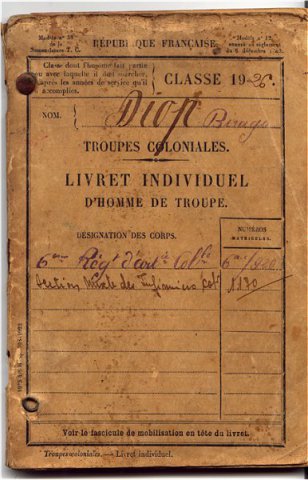 Modèle nº 58
de la
Nomenclature T. C.
RÉPUBLIQUE FRANÇAISE.
Modèle nº 12,
annexé au règlement
Classe dont l'homme fait partie
ou avec laquelle il doit marcher,
d'après les années de service qu'il
a accomplies.
CLASSE 1926.
NOM.
Diop Birago
TROUPES COLONIALES.
LIVRET INDIVIDUEL
D'HOMME DE TROUPE.
DÉSIGNATION DES CORPS.
NUMÉROS
MATRICULES.
6ème Régt
Section Mixte des Infirmiers Col
1170
Voir le fascicule de mobilisation en tête du livret.
Troupes coloniales. — Livret individuel.